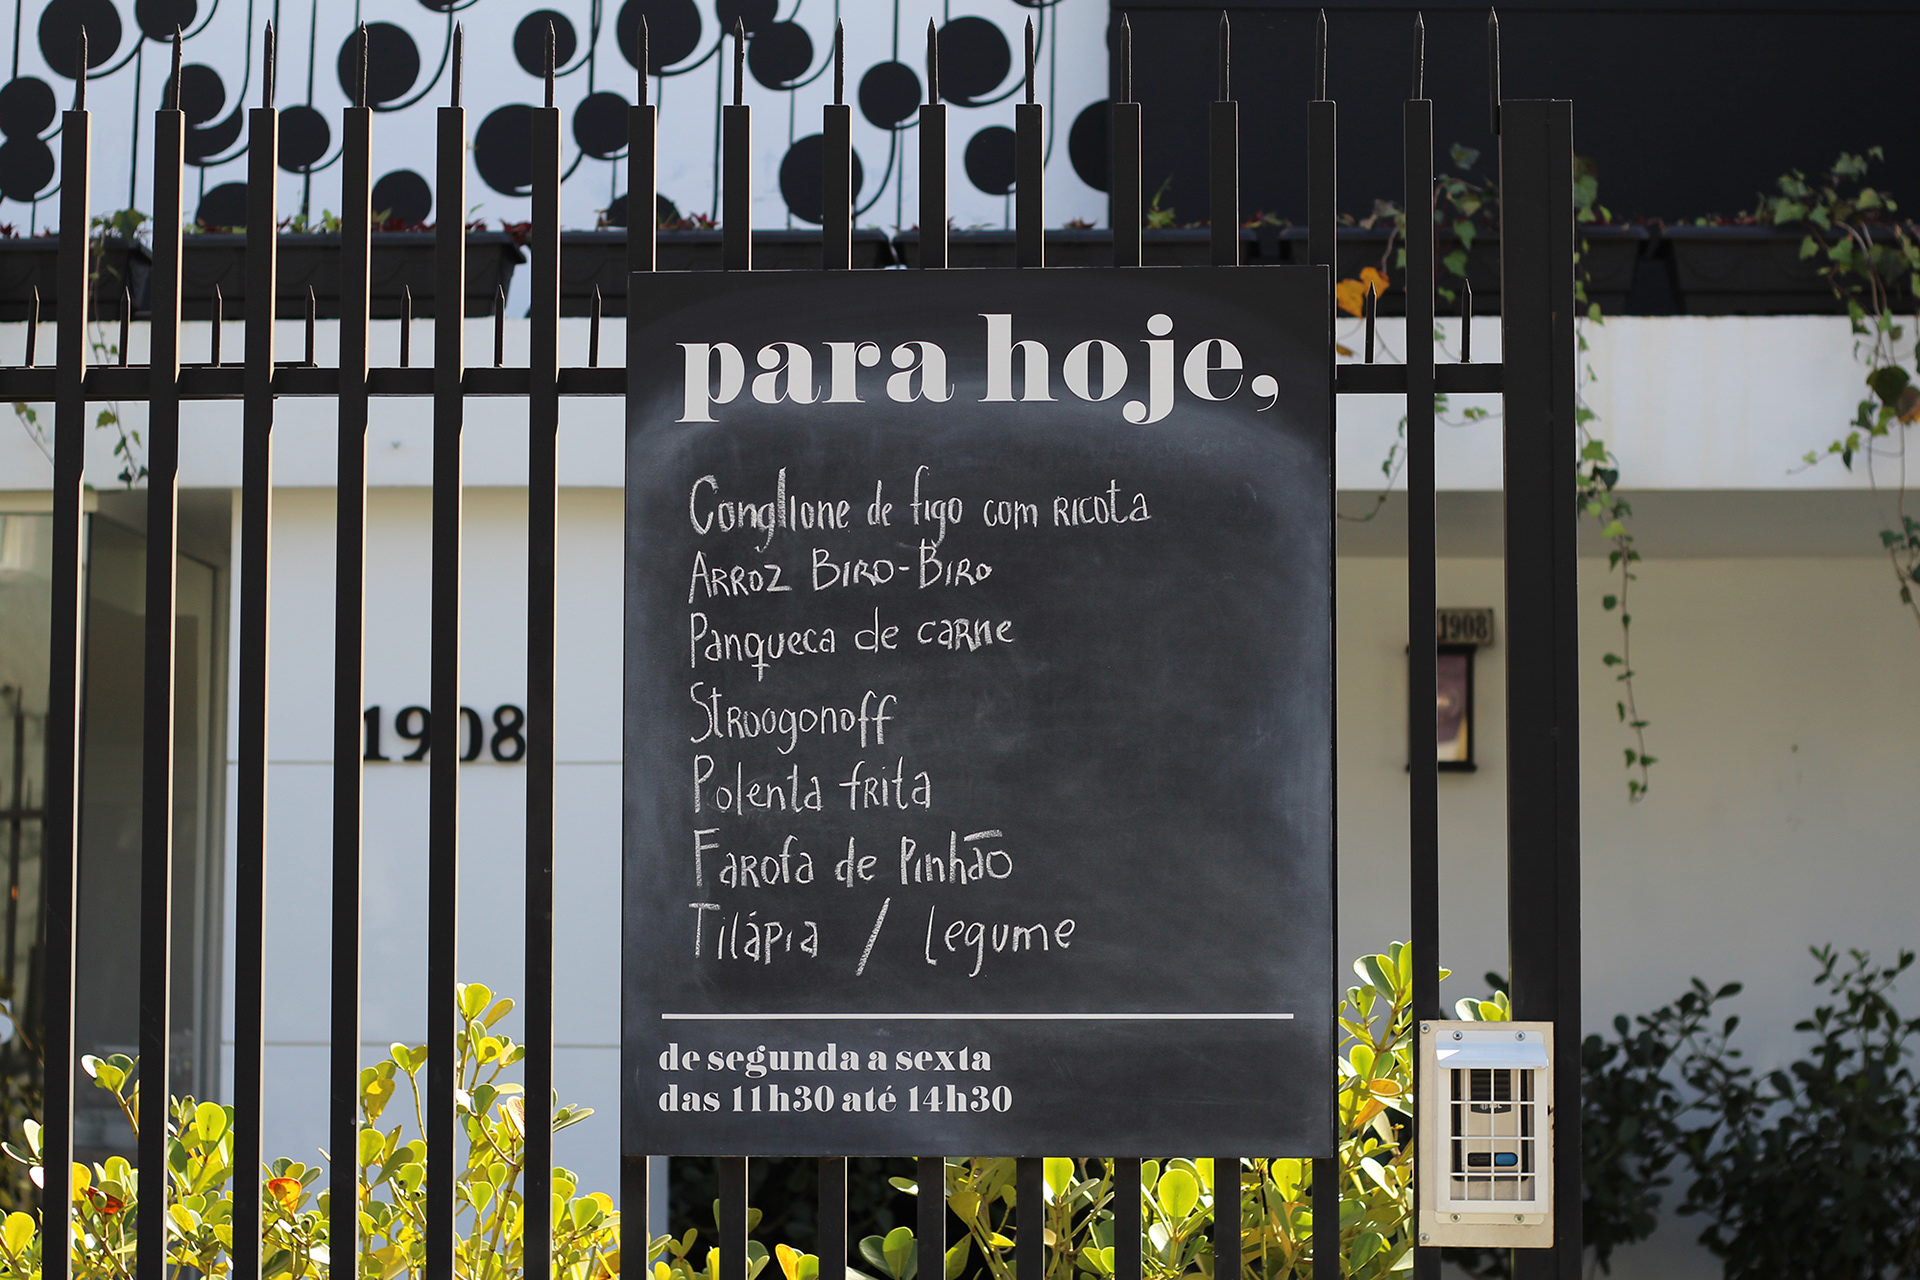 para hoje,
Conglione de figo com ricota
Arroz Biro-Biro
Panqueca de carne
Stroogonoff
Polenta frita
Farofa de Pinhão
Tilápia / legume
de segunda a sexta
das 11h30 até 14h30
1908
1908